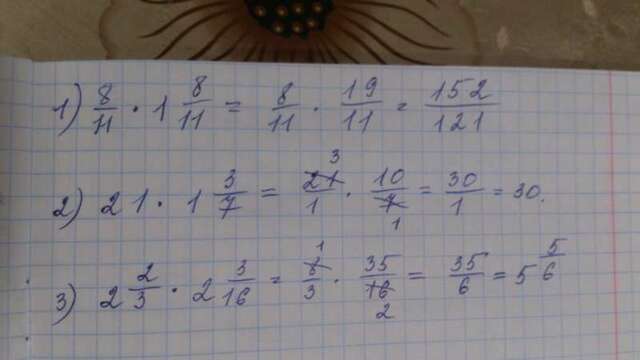 1) 8/11 · 1 8/11 = 8/11 · 19/11 = 152/121
2) 21 · 1 3/7 = 21 3/1 · 10/7 1 = 30/1 = 30.
3) 2 2/3 · 2 3/16 = 8 1/3 · 35/16 2 = 35/6 = 5 5/6